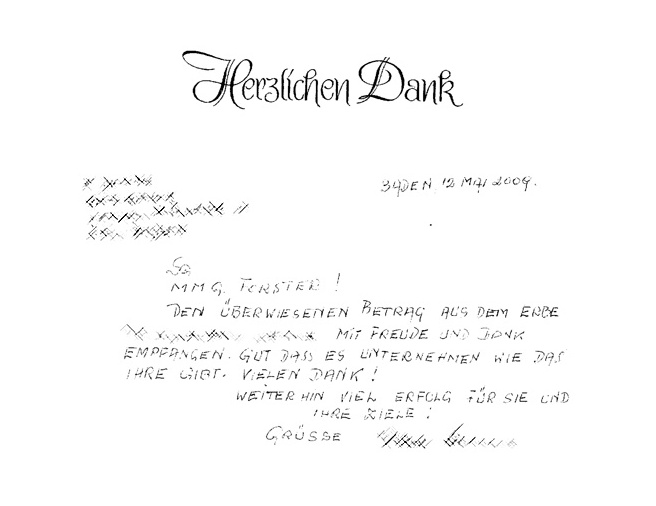 Herzlichen Dank
DEN 12 MAI 2009.
MMG. FORSTER!
DEN ÜBERWIESENEN BETRAG AUS DEM ERBE
MIT FREUDE UND DANK
EMPFANGEN. GUT DASS ES UNTERNEHMEN WIE DAS
IHRE GIBT. VIELEN DANK!
WEITERHIN VIEL ERFOLG FÜR SIE UND
IHRE ZIELE!
GRÜSSE